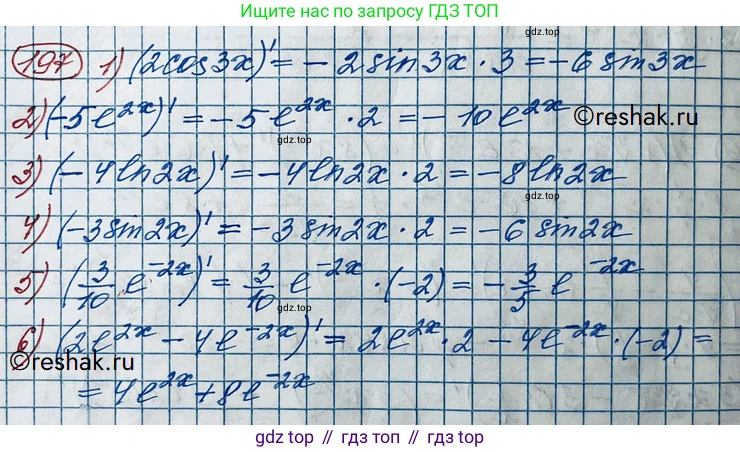 Ищите нас по запросу ГДЗ ТОП
197 1) (2cos3x)' = -2sin3x · 3 = -6sin3x
gdz.top
2) (-5e^{2x})' = -5e^{2x} · 2 = -10e^{2x}
©reshak.ru
gdz.top
3) (-4ln2x)' = -4ln2x · 2 = -8ln2x
gdz.top
4) (-3sin2x)' = -3sin2x · 2 = -6sin2x
5) (3/10 e^{-2x})' = 3/10 e^{-2x} · (-2) = -3/5 e^{-2x}
gdz.top
6) (2e^{2x} - 4e^{-2x})' = 2e^{2x} · 2 - 4e^{-2x} · (-2) =
©reshak.ru
= 4e^{2x} + 8e^{-2x}
gdz.top
gdz top // гдз топ // gdz top // гдз топ